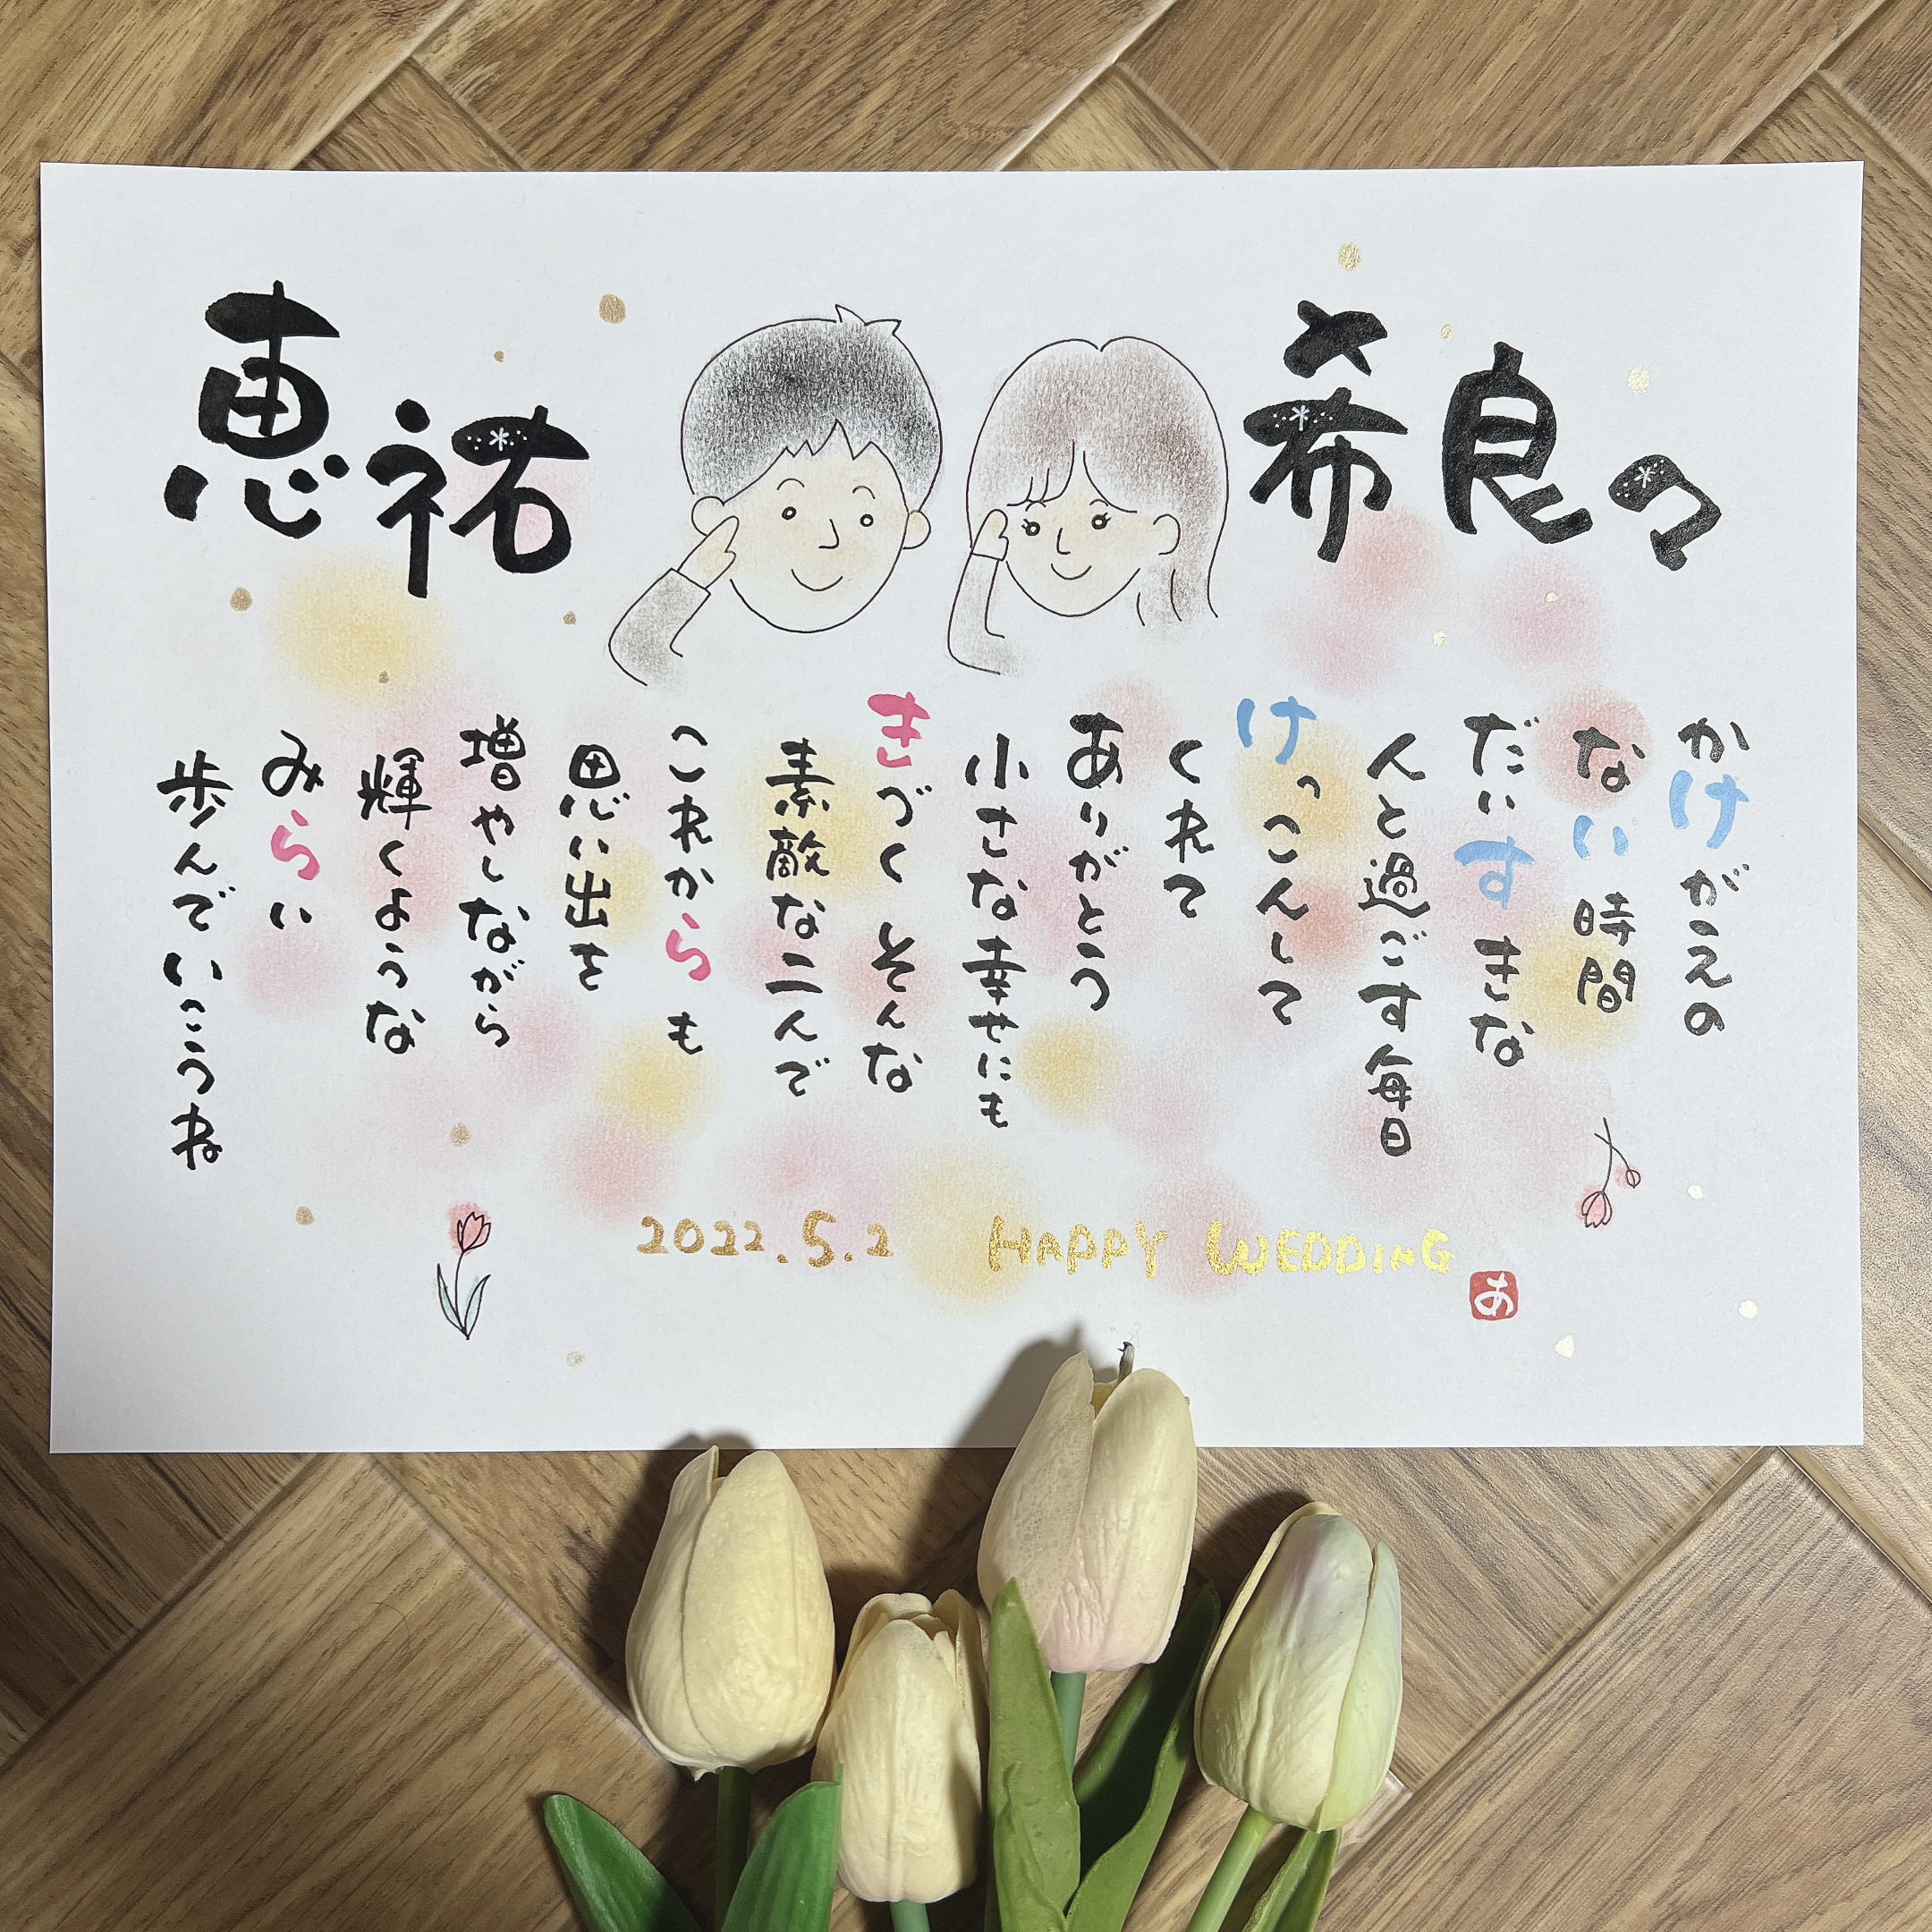 恵祐
希良々
かけがえの
ない時間
だいすきな
人と過ごす毎日
けっこんして
くれて
ありがとう
小さな幸せにも
きづく そんな
素敵な二人で
これからも
思い出を
増やしながら
輝くような
みらい
歩んでいこうね
2022.5.2 HAPPY WEDDING
あ